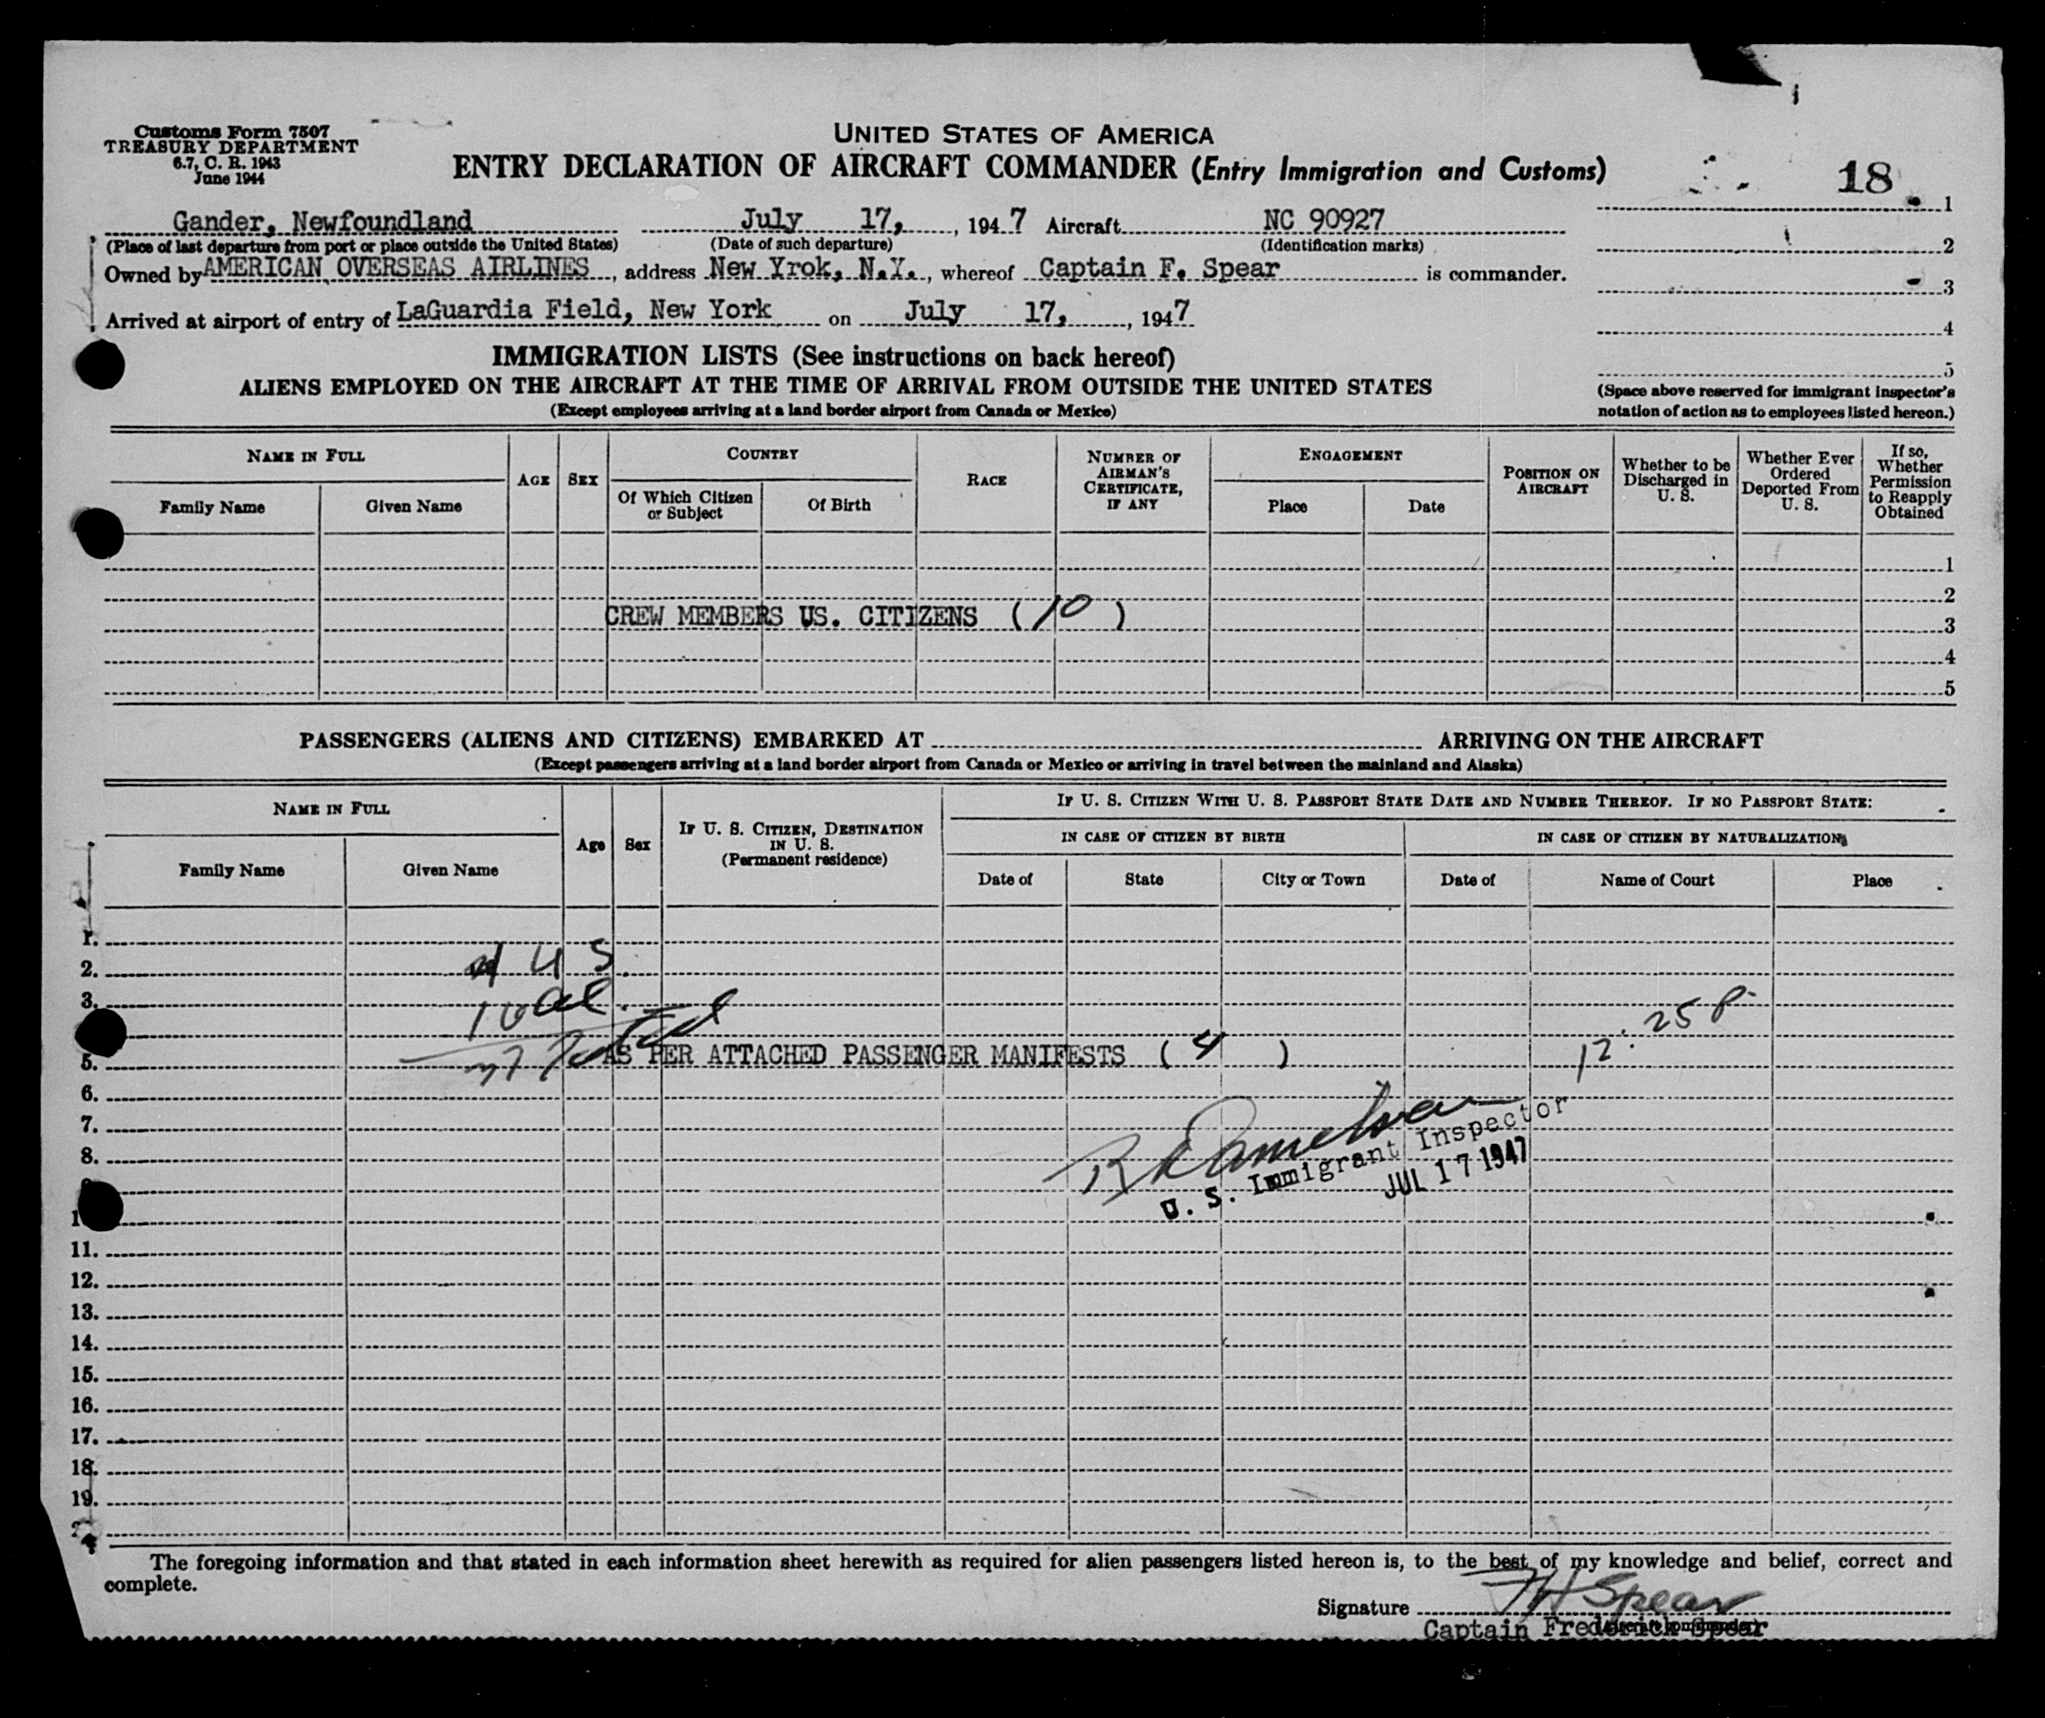 Customs Form 7507
TREASURY DEPARTMENT
6.7, C. R. 1943
June 1944
UNITED STATES OF AMERICA
ENTRY DECLARATION OF AIRCRAFT COMMANDER (Entry Immigration and Customs)
18
Gander, Newfoundland July 17, , 1947 Aircraft NC 90927
(Place of last departure from port or place outside the United States) (Date of such departure) (Identification marks)
Owned by AMERICAN OVERSEAS AIRLINES , address New Yrok, N.Y. , whereof Captain F. Spear is commander.
Arrived at airport of entry of LaGuardia Field, New York on July 17, , 1947
1
2
3
4
5
(Space above reserved for immigrant inspector's
notation of action as to employees listed hereon.)
IMMIGRATION LISTS (See instructions on back hereof)
ALIENS EMPLOYED ON THE AIRCRAFT AT THE TIME OF ARRIVAL FROM OUTSIDE THE UNITED STATES
(Except employees arriving at a land border airport from Canada or Mexico)
NAME IN FULL
Family Name Given Name
AGE
SEX
COUNTRY
Of Which Citizen or Subject
Of Birth
RACE
NUMBER OF AIRMAN'S CERTIFICATE, IF ANY
ENGAGEMENT
Place Date
POSITION ON AIRCRAFT
Whether to be Discharged in U. S.
Whether Ever Ordered Deported From U. S.
If so, Whether Permission to Reapply Obtained
1
2
CREW MEMBERS US. CITIZENS ( 10 )
3
4
5
PASSENGERS (ALIENS AND CITIZENS) EMBARKED AT ARRIVING ON THE AIRCRAFT
(Except passengers arriving at a land border airport from Canada or Mexico or arriving in travel between the mainland and Alaska)
NAME IN FULL
Family Name Given Name
Age
Sex
IF U. S. CITIZEN, DESTINATION IN U. S.
(Permanent residence)
IF U. S. CITIZEN WITH U. S. PASSPORT STATE DATE AND NUMBER THEREOF. IF NO PASSPORT STATE:
IN CASE OF CITIZEN BY BIRTH
Date of State City or Town
IN CASE OF CITIZEN BY NATURALIZATION
Date of Name of Court Place
1.
2. U S.
3.
Total
12:25 P.
5. AS PER ATTACHED PASSENGER MANIFESTS ( 4 )
6.
7.
8.
U. S. Immigrant Inspector
JUL 17 1947
11.
12.
13.
14.
15.
16.
17.
18.
19.
The foregoing information and that stated in each information sheet herewith as required for alien passengers listed hereon is, to the best of my knowledge and belief, correct and
complete.
Signature FH Spear
Captain Frederick Spear